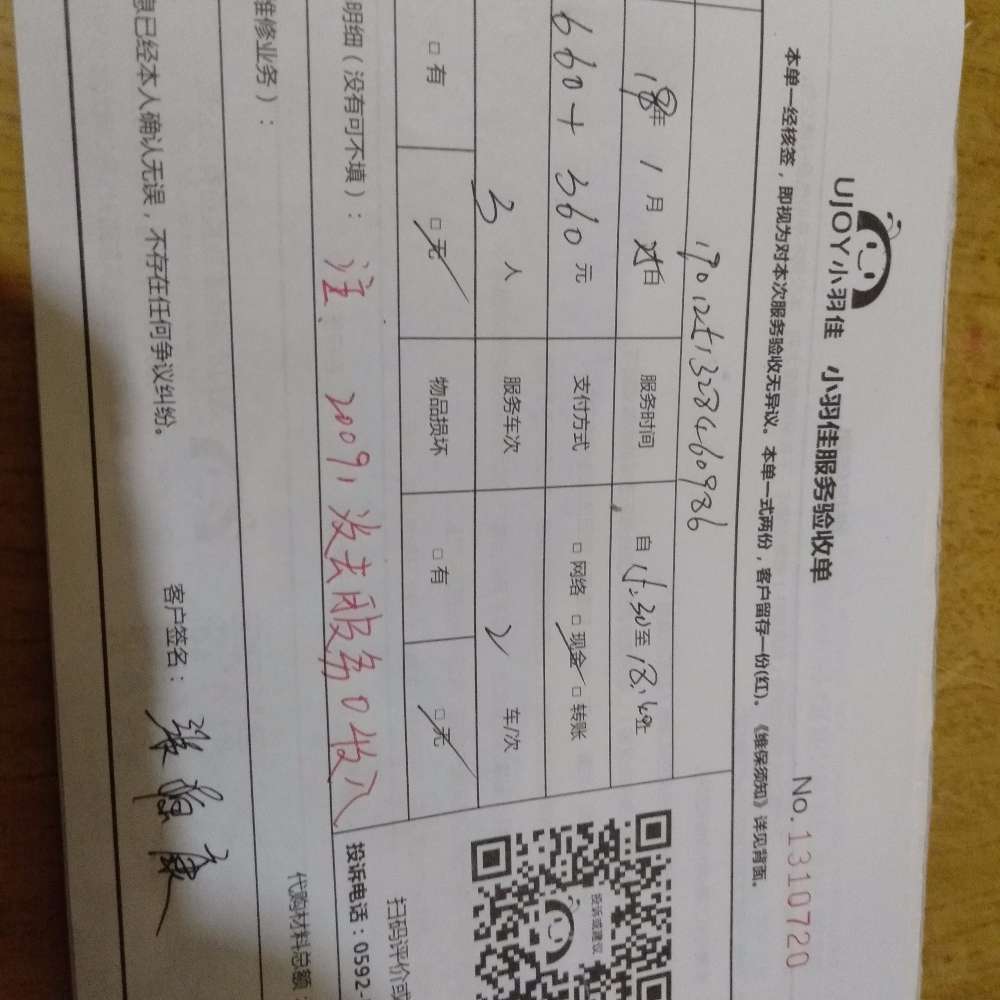 UJOY小羽佳 小羽佳服务验收单
No.1310720
本单一经核签，即视为对本次服务验收无异议。本单一式两份，客户留存一份(红)。《维保须知》详见背面。
年 1 月 日 服务时间 自 :30至 18:
660+360 元 支付方式 □ 网络 □ 现金 □ 转账
3 人 服务车次 2 车/次
□ 有 □ 无 物品损坏 □ 有 □ 无
明细（没有可不填）： 注 2009, 没去服务0收入
投诉或建议
扫码评价或
投诉电话：0592-
维修业务）：
代购材料总额：
息已经本人确认无误，不存在任何争议纠纷。
客户签名：